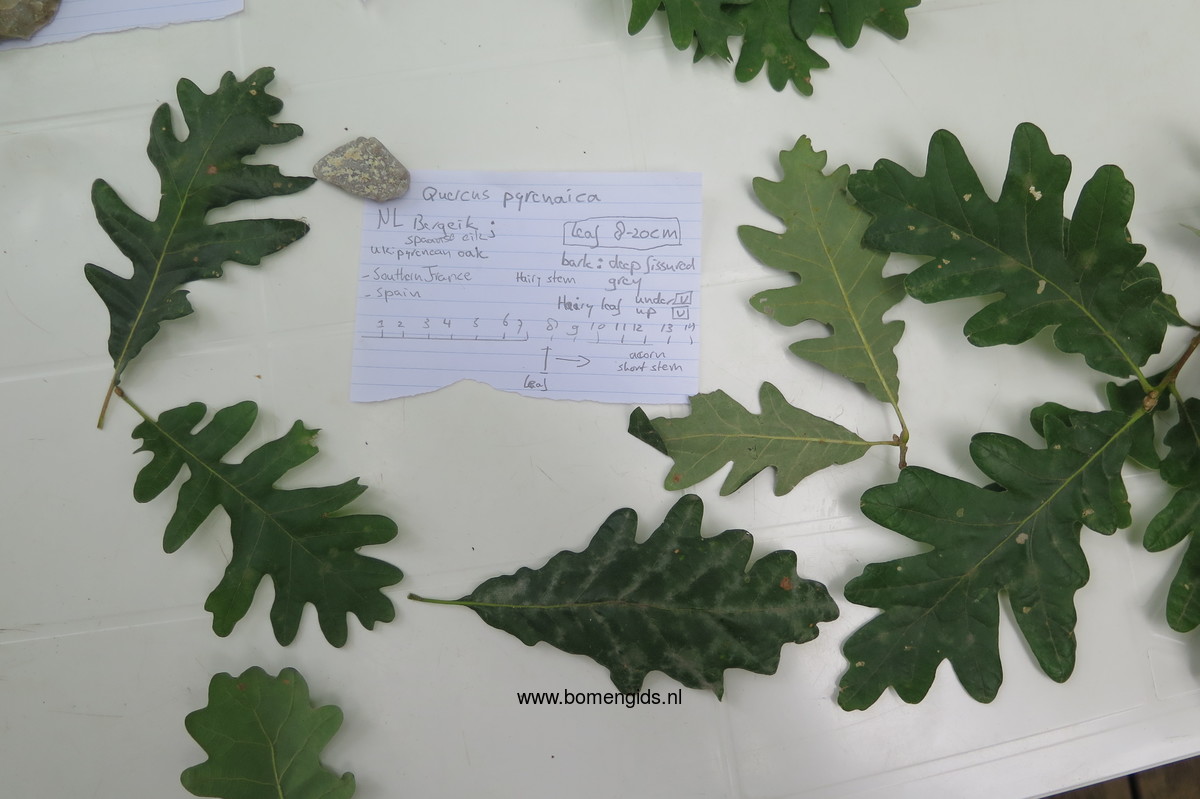 Quercus pyrenaica
NL Bergeik;
spaanse eik;
uk: pyrenean oak
- Southern France
- Spain
leaf 8-20cm
bark: deep fissured
grey
Hairy stem
Hairy leaf under V
up V
1 2 3 4 5 6 7 8 9 10 11 12 13 14
leaf
acorn
short stem
www.bomengids.nl